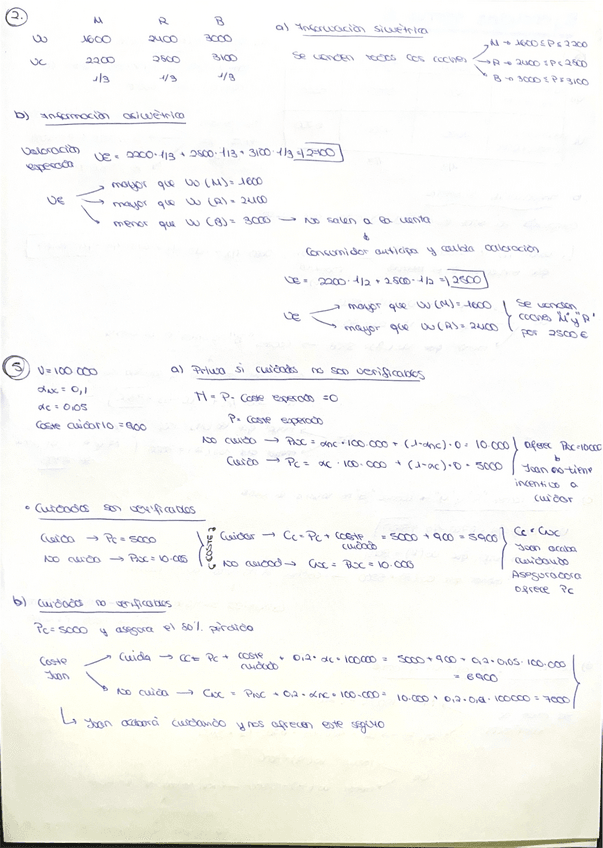 2.
M R B
Vv 1600 2400 3000
Vc 2200 2500 3100
1/3 1/3 1/3
a) Información simétrica
Se venden todos los coches
M → 1600 ≤ P ≤ 2200
R → 2400 ≤ P ≤ 2500
B → 3000 ≤ P ≤ 3100
b) Información asimétrica
Valoración esperada
VE = 2200·1/3 + 2500·1/3 + 3100·1/3 = 2600
VE
mayor que Vv (M) = 1600
mayor que Vv (R) = 2400
menor que Vv (B) = 3000 → No salen a la venta
Consumidor anticipa y cambia valoración
VE = 2200·1/2 + 2500·1/2 = 2500
VE
mayor que Vv (M) = 1600
mayor que Vv (R) = 2400
Se venden
coches "M" y "R"
por 2500€
5
V = 100 000
αnc = 0,1
αc = 0,05
Coste cuidarlo = 900
a) Prima si cuidados no son verificables
Π = P - Coste esperado = 0
P = Coste esperado
No cuida → Pnc = αnc · 100.000 + (1-αnc)·0 = 10.000
Cuida → Pc = αc · 100.000 + (1-αc)·0 = 5000
ofrece Pnc=10000
Juan no tiene
incentivo a
cuidar
• Cuidados son verificables
Cuida → Pc = 5000
No cuida → Pnc = 10.000
COSTE
Cuidar → Cc = Pc + coste cuidado = 5000 + 900 = 5900
No cuidad → Cnc = Pnc = 10.000
Cc < Cnc
Juan acaba
cuidando
Aseguradora
ofrece Pc
b) Cuidados no verificables
Pc = 5000 y asegura el 80% pérdida
Coste Juan
Cuida → Cc = Pc + coste cuidado + 0,2·αc·100000 = 5000 + 900 + 0,2·0,05·100.000
= 6900
No cuida → Cnc = Pnc + 0,2·αnc·100.000 = 10.000 + 0,2·0,1·100000 = 7000
Juan acabará cuidando y nos ofrecen este seguro